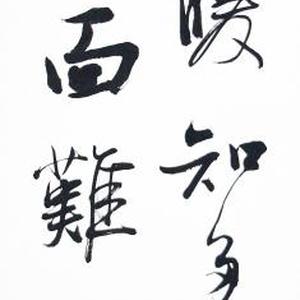 暖知多
面難